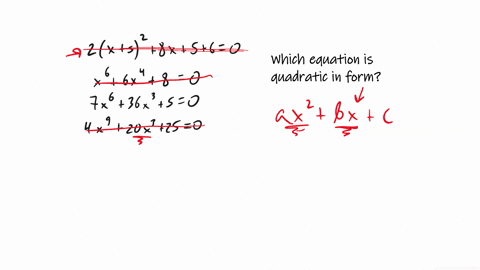 2(x+5)² + 8x + 5 + 6 = 0
x⁶ + 6x⁴ + 8 = 0
7x⁶ + 36x³ + 5 = 0
4x⁹ + 20x³ + 25 = 0
Which equation is
quadratic in form?
ax² + bx + c